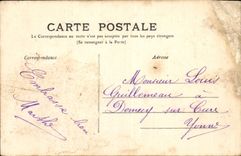 CARTE POSTALE
La Correspondance au recto n'est pas acceptée par tous les pays étrangers
(Se renseigner à la Poste)
Correspondance
Adresse
Embrasse bon
Monsieur Louis
Guillemeau à
Domecy sur Cure
Yonne